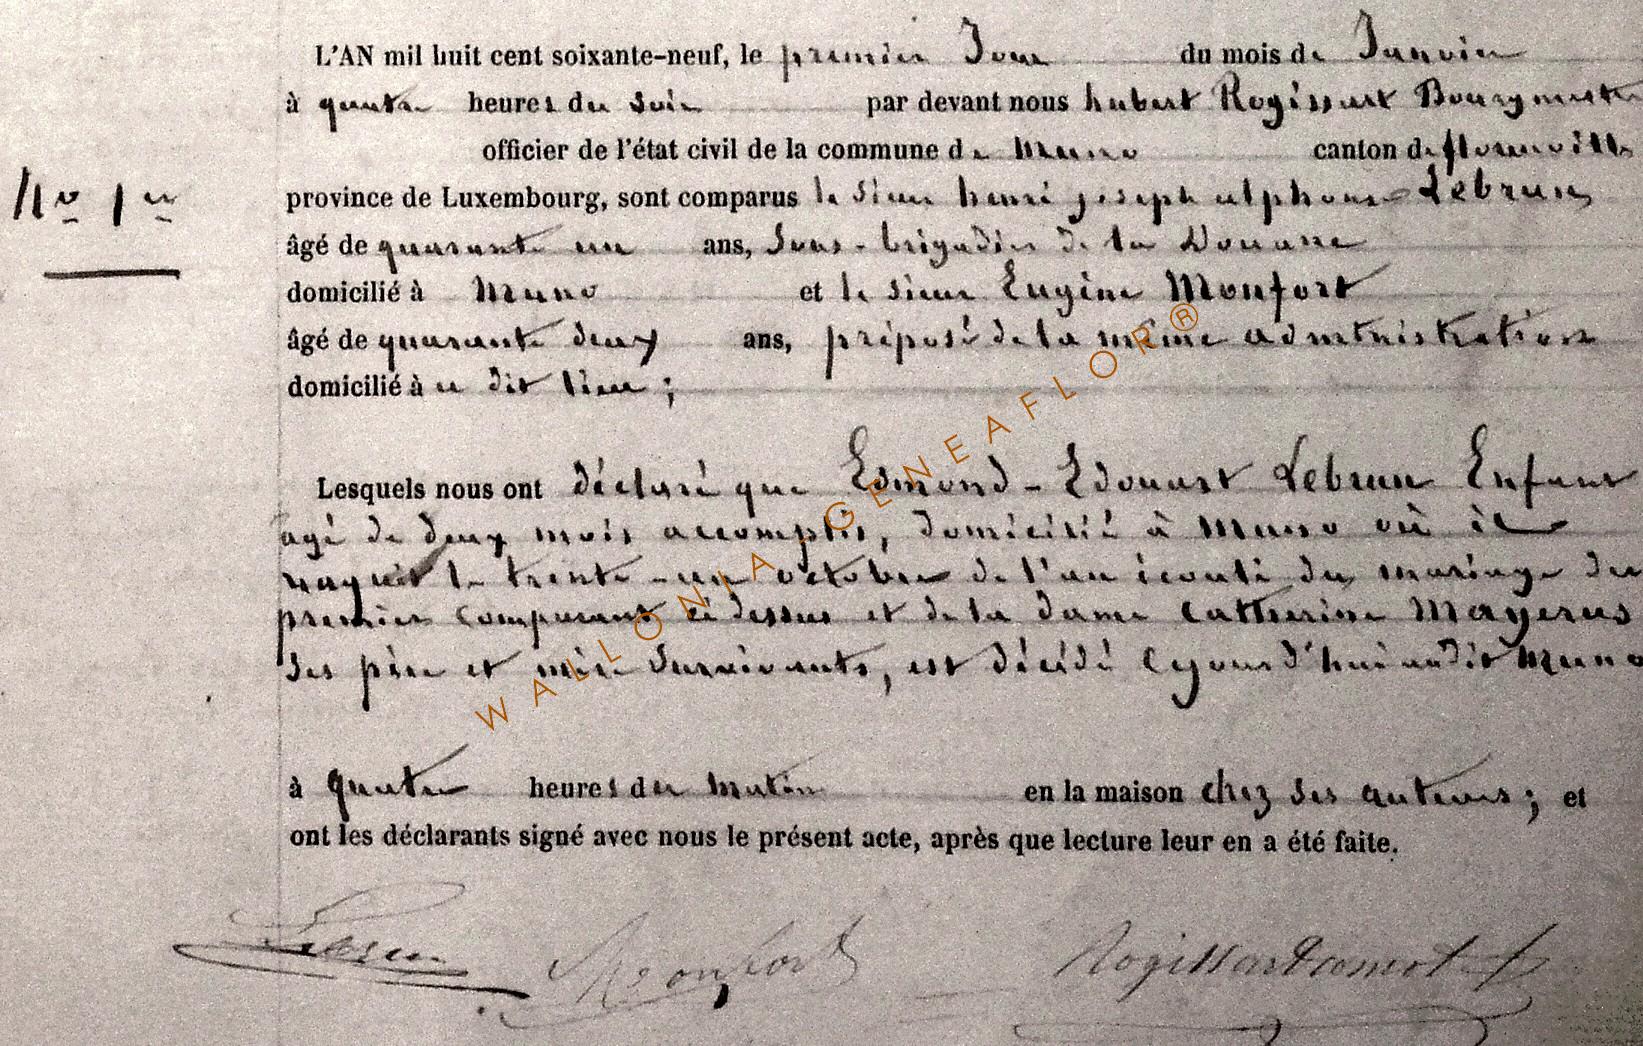 L'AN mil huit cent soixante-neuf, le premier Jour du mois de Janvier
à quatre heures du soir par devant nous hubert Rogissart Bourgmestre
officier de l'état civil de la commune de Muno canton de florenville
No 1er
province de Luxembourg, sont comparus le sieur henri joseph alphonse Lebrun
âgé de quarante un ans, Sous-brigadier de la Douane
domicilié à Muno et le sieur Eugène Monfort
âgé de quarante deux ans, préposé de la même administration
domicilié à ce dit lieu ;
Lesquels nous ont déclaré que Edmond-Edouart Lebrun Enfant
agé de deux mois accomplis, domicilié à Muno où il
naquit le trente-un octobre de l'an écoulé du mariage du
premier comparant ci dessus et de la dame Catherine Mayerus
ses père et mère survivants, est décédé cejourd'hui audit Muno
à quatre heures du matin en la maison chez ses auteurs ; et
ont les déclarants signé avec nous le présent acte, après que lecture leur en a été faite.
Lebrun Monfort Rogissart
WALLONIA GENEAFLOR®